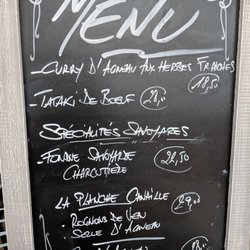 MENU
- CURRY D'AGNEAU AUX HERBES FRAICHES
18,50
- TATAKI DE BOEUF
SPÉCIALITÉS SAVOYARDES
- FONDUE SAVOYARDE 28,50
CHARCUTIÈRE
LA PLANCHE CANAILLE 29,00
- ROGNONS DE VEAU
SELLE D'AGNEAU